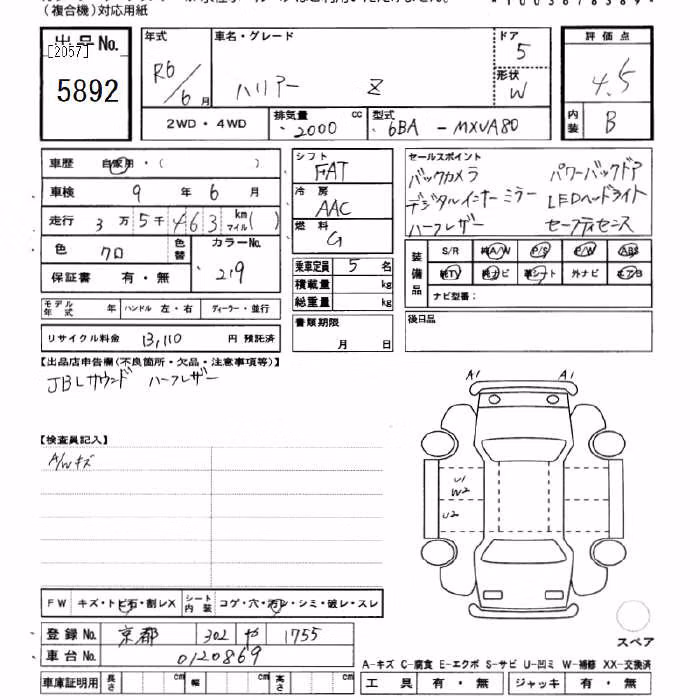 （複合機）対応用紙
出品No. [2057] 5892
年式 R6/6月
車名・グレード ハリアー Z
ドア 5
形状 W
評価点 4.5
内装 B
2WD・4WD
排気量 2000 cc
型式 6BA - MXUA80
車歴 自家用・（ ）
車検 9年 6月
走行 3万5千463 km マイル( )
色 クロ 色替 カラーNo. 219
保証書 有・無
シフト FAT
冷房 AAC
燃料 G
乗車定員 5 名
積載量 kg
総重量 kg
セールスポイント
バックカメラ パワーバックドア
デジタルインナーミラー LEDヘッドライト
ハーフレザー セーフティセンス
装備品 S/R 純A/W P/S P/W ABS
純TV 純ナビ 革シート 外ナビ エアB
ナビ型番：
モデル年式 年 ハンドル 左・右 ディーラー・並行
リサイクル料金 13,110 円 預託済
書類期限 月 日
後日品
【出品店申告欄(不良箇所・欠品・注意事項等)】
JBLサウンド ハーフレザー
A1 A1
【検査員記入】
A/Wキズ
U1
W2
U2
FW キズ・トビ石・割レX シート内装 コゲ・穴・汚レ・シミ・破レ・スレ
登録No. 京都 302 や 1755
車台No. 0120869
スペア
A-キズ C-腐食 E-エクボ S-サビ U-凹ミ W-補修 XX-交換済
車庫証明用 長さ cm 幅 cm 高さ cm
工具 有・無 ジャッキ 有・無